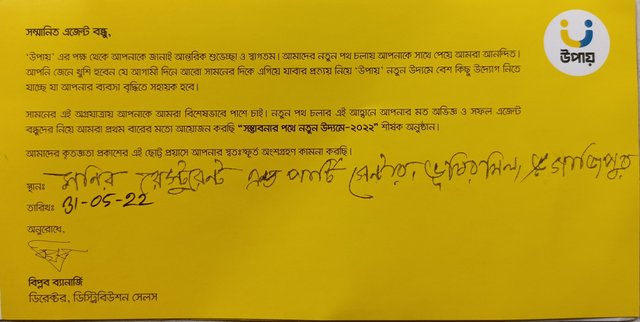 সম্মানিত এজেন্ট বন্ধু,
উপায়
‘উপায়’ এর পক্ষ থেকে আপনাকে জানাই আন্তরিক শুভেচ্ছা ও স্বাগতম। আমাদের নতুন পথ চলায় আপনাকে সাথে পেয়ে আমরা আনন্দিত।
আপনি জেনে খুশি হবেন যে আগামী দিনে আরো সামনের দিকে এগিয়ে যাবার প্রত্যয় নিয়ে ‘উপায়’ নতুন উদ্যমে বেশ কিছু উদ্যোগ নিতে
যাচ্ছে যা আপনার ব্যবসা বৃদ্ধিতে সহায়ক হবে।
সামনের এই অগ্রযাত্রায় আপনাকে আমরা বিশেষভাবে পাশে চাই। নতুন পথ চলার এই আহ্বানে আপনার মত অভিজ্ঞ ও সফল এজেন্ট
বন্ধুদের নিয়ে আমরা প্রথম বারের মতো আয়োজন করছি “সম্ভাবনার পথে নতুন উদ্যম-২০২২” শীর্ষক অনুষ্ঠান।
আমাদের কৃতজ্ঞতা প্রকাশের এই ছোট্ট প্রয়াসে আপনার স্বতঃস্ফূর্ত অংশগ্রহণ কামনা করছি।
স্থানঃ মনির রেস্টুরেন্ট এন্ড পার্টি সেন্টার, গাজিপুর
তারিখঃ 31-05-22
অনুরোধে,
বিপ্লব ব্যানার্জি
ডিরেক্টর, ডিস্ট্রিবিউশন সেলস